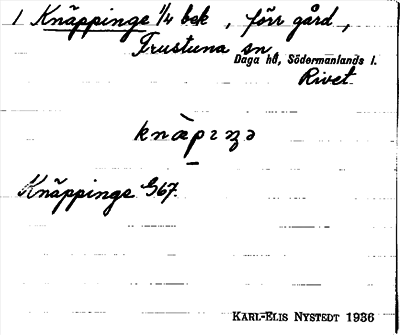 1 Knäppinge 1/4 bek, förr gård,
Frustuna sn
Daga hd, Södermanlands l.
Rivet.
Knäppinge G67.
KARL-ELIS NYSTEDT 1936